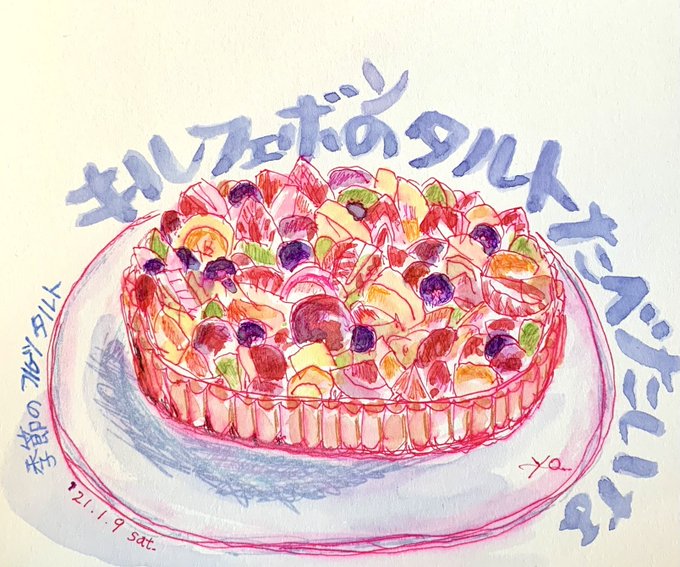 キルフェボンのタルト
たべたいなぁ
季節のフルーツタルト
'21.1.9 sat.
yo.